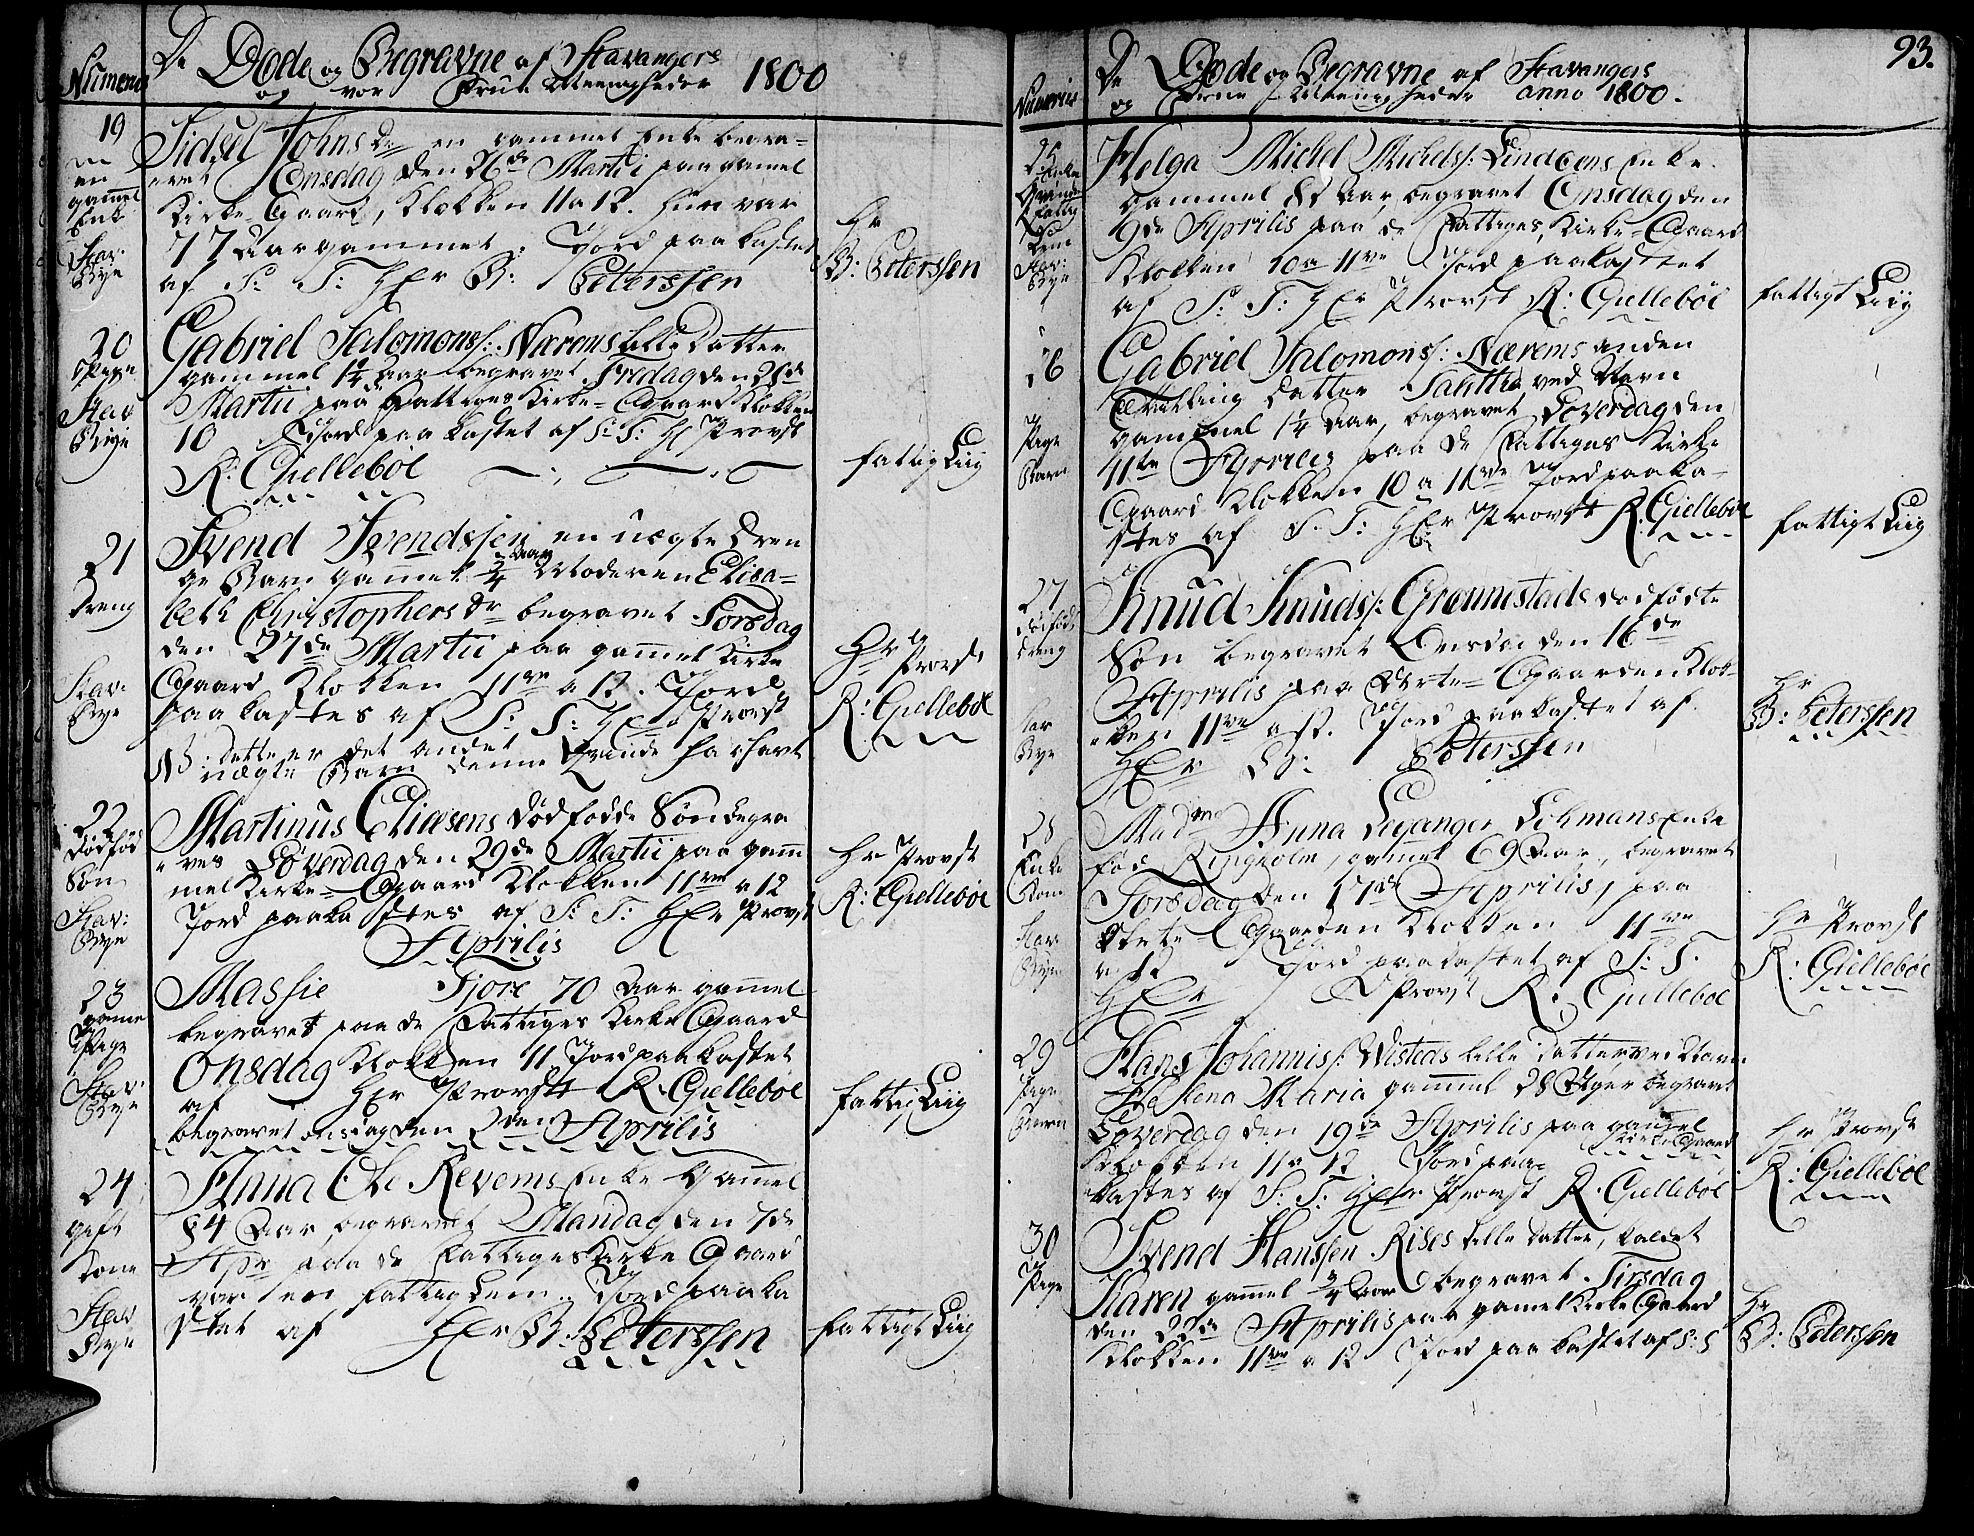 Numerus
De Døde og Begravne af Stavangers
og vor Frue Meenigheder 1800
19
en
gamel
Enke
Stav:
Bye
Sidsel Johns Dr en gammel Enke begra=
vet Onsdag den 26de Martii paa gamel
Kirke-Gaard, Klokken 11 a 12. hun var
77 Aar gammel. Jord paa kastet
af S. T. Hr B: Peterssen
Hr
B: Peterssen
20
Pige
Stav
Bye
Gabriel Salomons: Nærems lille Datter
gammel 1¼ Aar begravet Fredag den 28de
Martii paa Fattiges Kirke=Gaard Klokken
10 Jord paa kastet af S: T: Hr Provst
R: Gjellebøl
fattig Liig
21
Dreng
Stav:
Bye
Svend Svendssen en uægte Dren
ge Barn gamel ¾ Aar Moderen Elisa=
beth Christophers Dr begravet Torsdag
den 27de Martii paa gamel Kirke
Gaard Klokken 11ve a 12. Jord
paa kastes af S: T: Hr Provst
NB: dette er det andet
uægte Barn denne Qvinde har havt
Hr Provst
R: Gjellebøl
22
Dødfød
Søn
Stav:
Bye
Martinus Eliæsens dødfødde Søn begra
ves Løverdag den 29de Martii paa gam
mel Kirke=Gaard Klokken 11ve a 12
Jord paaka stes af S: T: Hr Provst
Hr Provst
R: Gjellebøl
Aprilis
23
gamel
Pige
Stav:
Bye
Massie Tjore 70 Aar gamel
begravet paa de Fattiges Kirke Gaard
Onsdag Klokken 11 Jord paakastet
af Hr Provst R. Gjellebøl
begravet onsdag den 2den Aprilis
fattig Liig
24
gift
Kone
Stav
Bye
Anna Ole Revems Enke gamel
84 Aar begravet Mandag den 7de
Apr paa de Fattiges Kirke Gaard
var en fattig Lem. Jord paaka
stet af Hr B. Peterssen
fattigt Liig
93.
Numerus
De Døde og Begravne af Stavangers
og Frue Meenigheder anno 1800.
25
Enke
Qvinde
fattig
Lem
Stav:
Bye
Helga Michel Michels: Lindøens Enke
gammel Aar, begravet Onsdag den
9de Aprilis paa de Fattiges Kirke=Gaard
Klokken 10 a 11ve Jord paakastet
af S: T: Hr Provst R: Gjellebøl
fattigt Liig
26
Pige
Barn
Gabriel Salomons: Nærems anden
Tvilling Datter ved Navn
gammel 1¼ Aar, begravet Løverdag den
11te Aprilis paa de Fattiges Kirke
Gaard Klokken 10 a 11ve Jord paaka=
stes af S. T: Hr Provst R. Gjellebøl
fattigt Liig
27
dødfød
Dreng
Stav
Bye
Knud Knuds: Grønnestads dødfødte
Søn begravet Onsdag den 16de
Aprilis paa Gaarden Klok=
ken 11ve a 12. Jord paakastet af
Hr B: Peterssen
Hr
B: Peterssen
28
Enke
Kone
Stav:
Bye
Madme Anna Leganger Lohmans Enke
fød Ringholm, gamel 69 Aar, begravet
Torsdag den 17de Aprilis, paa
Gaarden Klokken 11ve
a 12 Jord paakastet af S: T.
Hr Provst R. Gjellebøl
Hr Provst
R: Gjellebøl
29
Pige
Barn
Hans Johannis: Wisteds lille datter ved Navn
Helena Maria gammel 28 Uger begravet
Løverdag den 19de Aprilis paa gamel
Kirke Gaard
Klokken 11 a 12 Jord paa=
kastes af S. T: Hr Provst R. Gjellebøl
Hr Provst
R: Gjellebøl
30
Pige
Svend Hanssen Rises lille datter, kaldet
Karen gamel ¾ Aar begravet Tirsdag
den 22de Aprilis paa gamel Kirke Gaard
Klokken 11ve a 12 Jord paa kastet af S: S
Hr
B: Peterssen